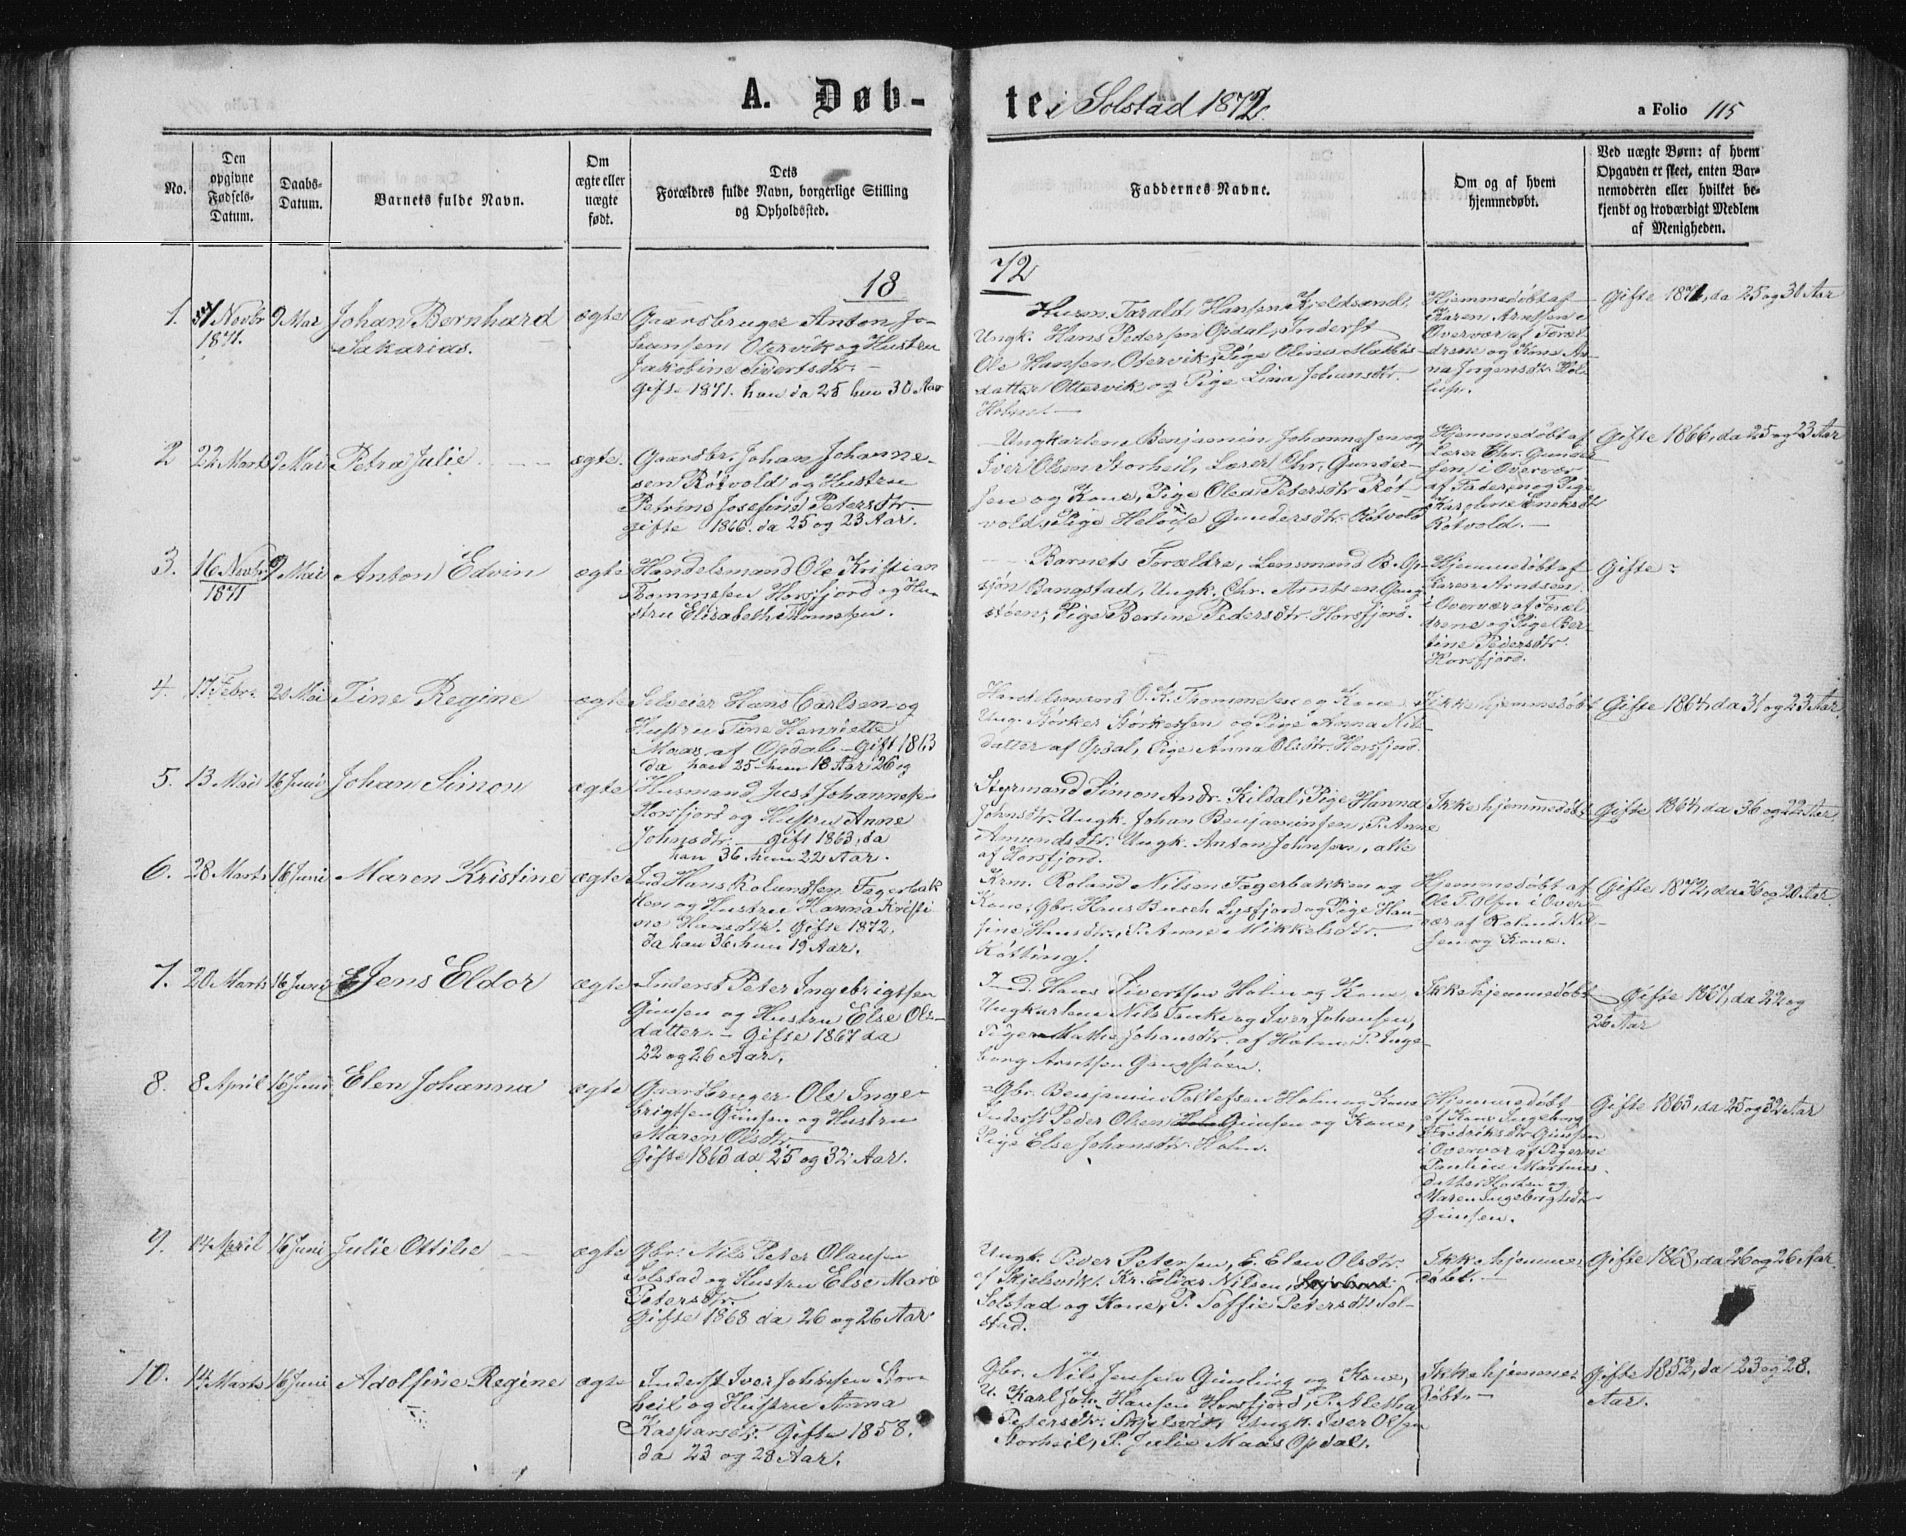 A. Døb-
te i Solstad 1872.
a Folio 115
No.
Den
opgivne
Fødsels-
Datum.
Daabs-
Datum.
Barnets fulde Navn.
Om
ægte eller
uægte
født.
Dets
Forældres fulde Navn, borgerlige Stilling
og Opholdssted.
Faddernes Navne.
Om og af hvem
hjemmedøbt.
Ved uægte Børn: af hvem
Opgaven er skeet, enten Bar-
nemoderen eller hvilket be-
kjendt og troværdigt Medlem
af Menigheden.
18
72
1.
Novbr
1871.
9 Mai
Johan Bernhard
Sakarias.
ægte
Gaardbruger Anton Jo-
hansen Otervik og Hustru
Jakobine Sivertsdtr.
Gifte 1871. han da 25 hun 30 Aar
Husm. Tarald Hansen Kjeldsand.
Ungk. Hans Pedersen Opdal, Inderst
Ole Hansen Otervik, Pige Olina Mathis-
datter Otervik og Pige Lina Johansdtr.
Holmen
Hjemmedøbt af
Karen Arntsen i
Overvær af Foræl-
drene og Kone An-
na Jørgensdtr.
Gifte 1871, da 25 og 30 Aar
2
22 Marts
9 Mai
Petra Julie
ægte.
Gaardbr. Johan Johanne-
sen Røtvold og Hustru
Petrine Josefine Petersdtr.
gifte 1866. da 25 og 23 Aar.
Ungkarlene Benjamin Johannesen og
Iver Olsen Storheil, Lærer Chr. Gunder-
sen og Kone, Pige Olea Petersdtr Røt-
vold, Pige Helvise Gundersdtr. Røtvold
Hjemmedøbt af
Lærer Chr. Gunder-
sen i Overvær
af Faderen og Pige
Karoline Enoksdtr
Røtvold.
Gifte 1866, da 25 og 23 Aar
3.
16 Novbr.
1871
9 Mai
Anton Edvin
ægte
Handelsmand Ole Kristian
Thommesen Horsfjord og Hu-
stru Elisabeth Thomesen.
Barnets Forældre, Lensmand B. Gr-
sjøn Bangstad, Ungk. Chr. Arntsen Gang-
støen, Pige Bertine Pedersdtr. Horsfjord.
Hjemmedøbt af
Karen Arntsen
i Overvær af Foræl
drene og Pige Ber-
tine Pedersdtr.
Horsfjord.
Gifte
4.
17 Febr.
20 Mai
Tine Regine
ægte
Selveier Hans Carlsen og
Hustru Tine Henriette
Maas af Opdal - Gift 1863
da han 25 hun 18 Aar 26 og
Handelsmand O. K. Thommesen og Kone
Ung. Størker Størkersen og Pige Anna Nils
datter af Opdal, Pige Anna Olsdtr. Horsfjord.
Ikke hjemmedøbt
Gifte 1864, da 31 og 23 Aar.
5.
13 Mai
16 Juni
Johan Simon
ægte
Husmand Just Johannesen
Horsfjord og Hustru Anne
Johnsdtr. - Gift 1863, da
han 36 hun 22 Aar.
Styrmand Simon Andr. Kildal, Pige Hanna
Johnsdtr. Ungk. Johan Benjaminsen, P. Anne
Amundsdtr. Ungk. Anton Johnsen, alle
af Horsfjord.
Ikke hjemmedøbt
Gifte 1864, da 36 og 22 Aar
6.
28 Marts
16 Juni
Maren Kristine
ægte
Ind. Hans Rolundsen Fagerbak
ken og Hustru Hanna Kristi-
ne Hansdtr. Gifte 1872.
da han 36 hun 19 Aar.
Krm. Roland Nilsen Fagerbakken og
Kone, Gbr. Hans Busch Lysfjord og Pige Han-
sine Hansdtr., P. Anne Mikkelsdtr.
Køtting.
Hjemmedøbt af
Ole P. Olsen i Over-
vær af Roland Nil-
sen og Kone.
Gifte 1872, da 36 og 20 Aar.
7.
20 Marts
16 Juni
Jens Eldor
ægte
Inderst Peter Ingebrigtsen
Gimsen og Hustru Else Ols-
datter. - Gifte 1867 da
22 og 26 Aar.
Ind. Hans Sivertsen Holm og Kone
Ungkarlene Nils Tuske og Iver Johansen,
Pigerne Mathea Johansdtr. af Holm, P. Inge-
borg Arntsen Gangstøen.
Ikke hjemmedøbt
Gifte 1867, da 22 og
26 Aar
8.
8 April
16 Juni
Elen Johanna
ægte
Gaardbruger Ole Inge-
brigtsen Gimsen og Hustru
Maren Olsdtr
Gifte 1863 da 25 og 32 Aar.
Gbr. Benjamin Tollefsen Holm og Kone
Inderst Peder Olsen Gimsen og Kone,
Pige Else Johansdtr. Holm.
Hjemmedøbt
af Kone Ingeborg
Fredriksdtr Gimsen
i Overvær af Pigerne
Paulina Martines
datter Horten og
Maren Ingebrigtsdtr
Gimsen.
Gifte 1863, da 25 og 32 Aar
9.
14 April
16 Juni
Julie Ottilie
ægte
Gbr. Nils Peter Olausen
Solstad og Hustru Else Marie
Petersdtr.
Gifte 1868 da 26 og 26 Aar
Ungk. Peder Petersen, E. Elen Olsdtr.
af Skjelsvik, Kr. Elias Nilsen,
Solstad og Kone, P. Soffie Petersdtr Sol-
stad.
Ikke hjemme-
døbt.
Gifte 1868, da 26 og 26 Aar.
10.
14 Marts
16 Juni
Adolfine Regine
ægte
Inderst Iver Johnsen Stor-
heil og Hustru Anna
Kaspersdtr. Gifte 1858.
da 23 og 28 Aar.
Gbr. Nils Jensen Gimling og Kone,
U. Karl Joh. Hansen Horsfjord, P. Aletha
Petersdtr. Skjelsvik, Ungk. Iver Olsen
Storheil, P. Julie Maas Opdal.
Ikke hjemme-
døbt
Gifte 1852, da 23 og 28.
Aar.